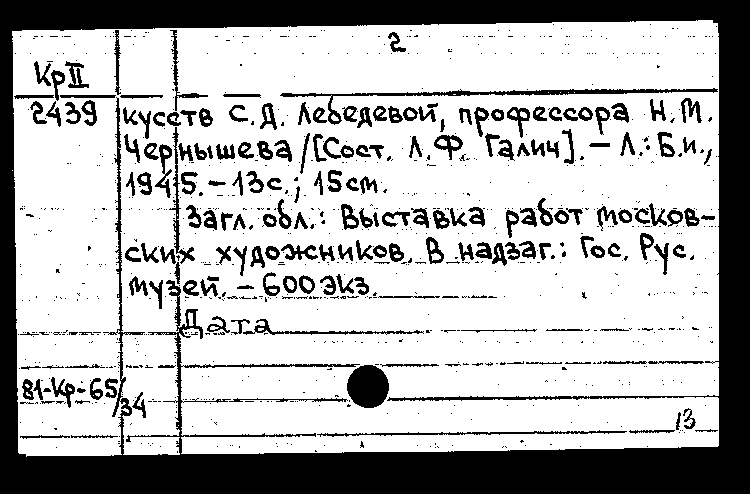 2
Кр II
2439 кусств С.Д. Лебедевой, профессора Н.М.
Чернышева / [Сост. Л.Ф. Галич]. – Л.: Б.и.,
1945. – 13 с.; 15 см.
Загл. обл.: Выставка работ москов-
ских художников. В надзаг.: Гос. Рус.
музей. – 600 экз.
Дата
81-Кр-65/34
13